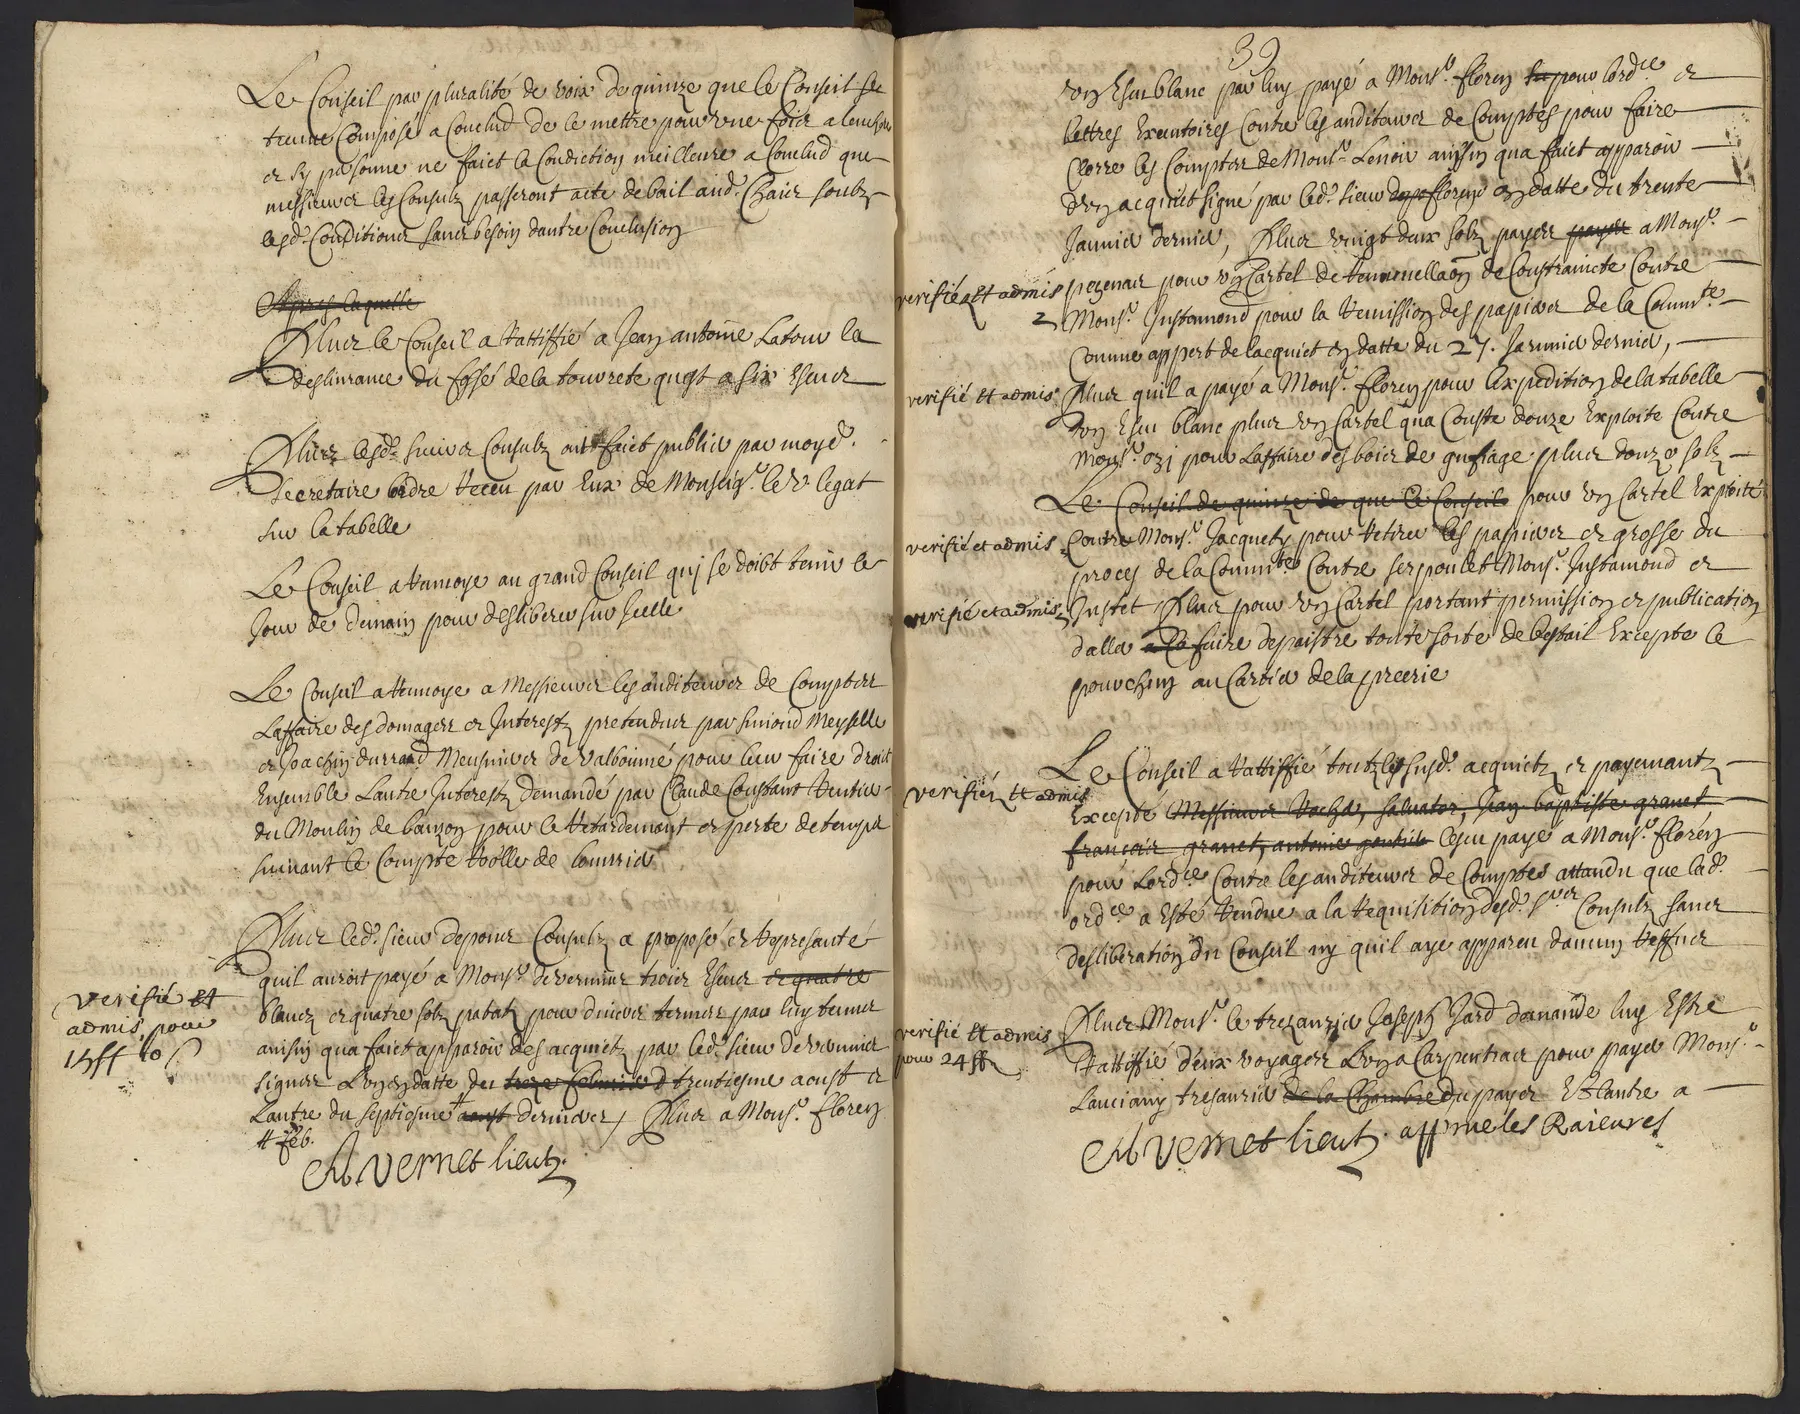 Le Conseil par pluralité de voix de quinze que le Conseil se
treuve Composé a Conclud de le mettre pour une fois a lenchere
et sy personne ne faict la Condiction meilleure a Conclud que
messieurs les Consulz passeront acte de bail aud. Chaix soubz
lesd. Conditions sans besoin dautre Conclusion
Apres laquelle
Plus le Conseil a rattiffié a Jean antoine Latour la
deslivrance du fossé de la tourrete qu'est a six escus
Plus lesd. sieurs Consulz ont faict publier par moyd.
secretaire lordre receu par Eux de Monseigr. le V. legat
sur la tabelle
Le Conseil a ranvoye au grand Conseil quj se doibt tenir le
Jour de demain pour desliberer sur Icelle
Le Conseil a renvoye a Messieurs les auditeurs de Comptes
Laffaire des domages et Interestz pretendus par simond Meyselle
et Joachin durrand Meusniers de valbonne pour leur faire droit
Ensemble Lautre Interestz demandé par Claude Constant Rentier
du Moulin de bauzon pour le retardement et perte de temps
suivant le Compte Roolle de
Plus led. sieur deponus Consulz a proposé et representé
quil auroit payé a Monsr. devermius trois Escus et quatre
blancz et quatre solz patatz pour divers termes par luy tenus
ainsin qua faict apparoir des acquietz par led. sieur
signes Lun en datte du treze febvrier d trentiesme aoust et
Lautre du septiesme aoust dernier, Plus a Monsr. floren
# feb.
verifié et
admis pour
15 ff 10 s
Vernet lieut.
39
un Escu blanc par luy payé a Monsr. floren pour lordce et
lettres Executoires Contre les auditeurs de Comptes pour faire
Clorre les Comptes de Monsr. Lenoir ainsin qua faict apparoir
dun acquiet signé par led. sieur floren en datte du trente
Janvier dernier, Plus vingt deux solz payes payes a Monsr.
verifié et admis
pezenas pour un Cartel de de Constraincte Contre
2
Monsr. Justamond pour la remission des papiers de la Commte.
Comme appert de lacquiet en datte du 27. Janvier dernier,
verifié et admis
Plus quil a payé a Monsr. floren pour lexpedition de la tabelle
un Escu blanc plus un Cartel qua Couste douze Exploite Contre
Monsr. pour Laffaire des bois de plus douze solz
Le Conseil de quinze de que le Conseil pour un Cartel Exploité
verifié et admis
Contre Monsr. Jacquetz pour retirer les papiers et grosse du
proces de la Commte. Contre serpoulet Monsr. Justamond et
verifié et admis
Justet Plus pour un Cartel portant permission et publication
daller a la faire depaistre toute sorte de bestail Excepte le
pourchin au Cartier de la preerie
Le Conseil a rattiffié toutz les susd. acquietz et payemantz
verifiés et admis
Excepté Messieurs salvator, Jean baptiste granet
francois granet, antoine lescu payé a Monsr. floren
pour Lordce. Contre les auditeurs de Comptes attandu que lad.
ordce. a Esté rendue a la requisition desd. srs. Consulz sans
desliberation du Conseil ny quil aye apparu daucun reffus
verifié et admis
pour 24 ff
Plus Monsr. le trezaurier Joseph Jard demande luy Estre
rattiffié deux voyages Lun a Carpentras pour payer Monsr.
Lanciany tresaurier de la Chambre du payes Et lautre a
Vernet lieut. appruve les Raieures